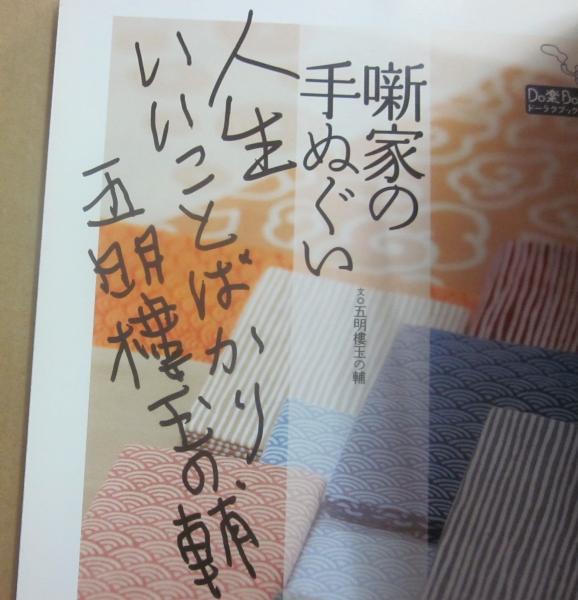 Do楽Bo
ドーララブック
噺家の
手ぬぐい
文◎五明樓玉の輔
人生
いいことばかり。
五明樓玉の輔